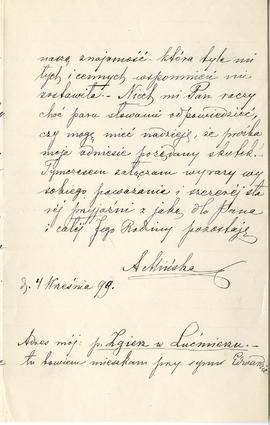 naszą znajomość która tyle mi
łych i cennych wspomnień mi
zostawiła. - Niech mi Pan raczy
choć paru słowami odpowiedzieć,
czy mogę mieć nadzieję, że prośba
moja odniesie pożądany skutek.
Tymczasem załączam wyrazy wy
sokiego poważania i szczerej sta
rej przyjaźni z jaką dla Pana
i całej Jego Rodziny pozostaję
A Mińska
d. 4 Września 99.
Adres mój: p. Zgierz w Lućmierzu. -
tu bowiem mieszkam przy synu